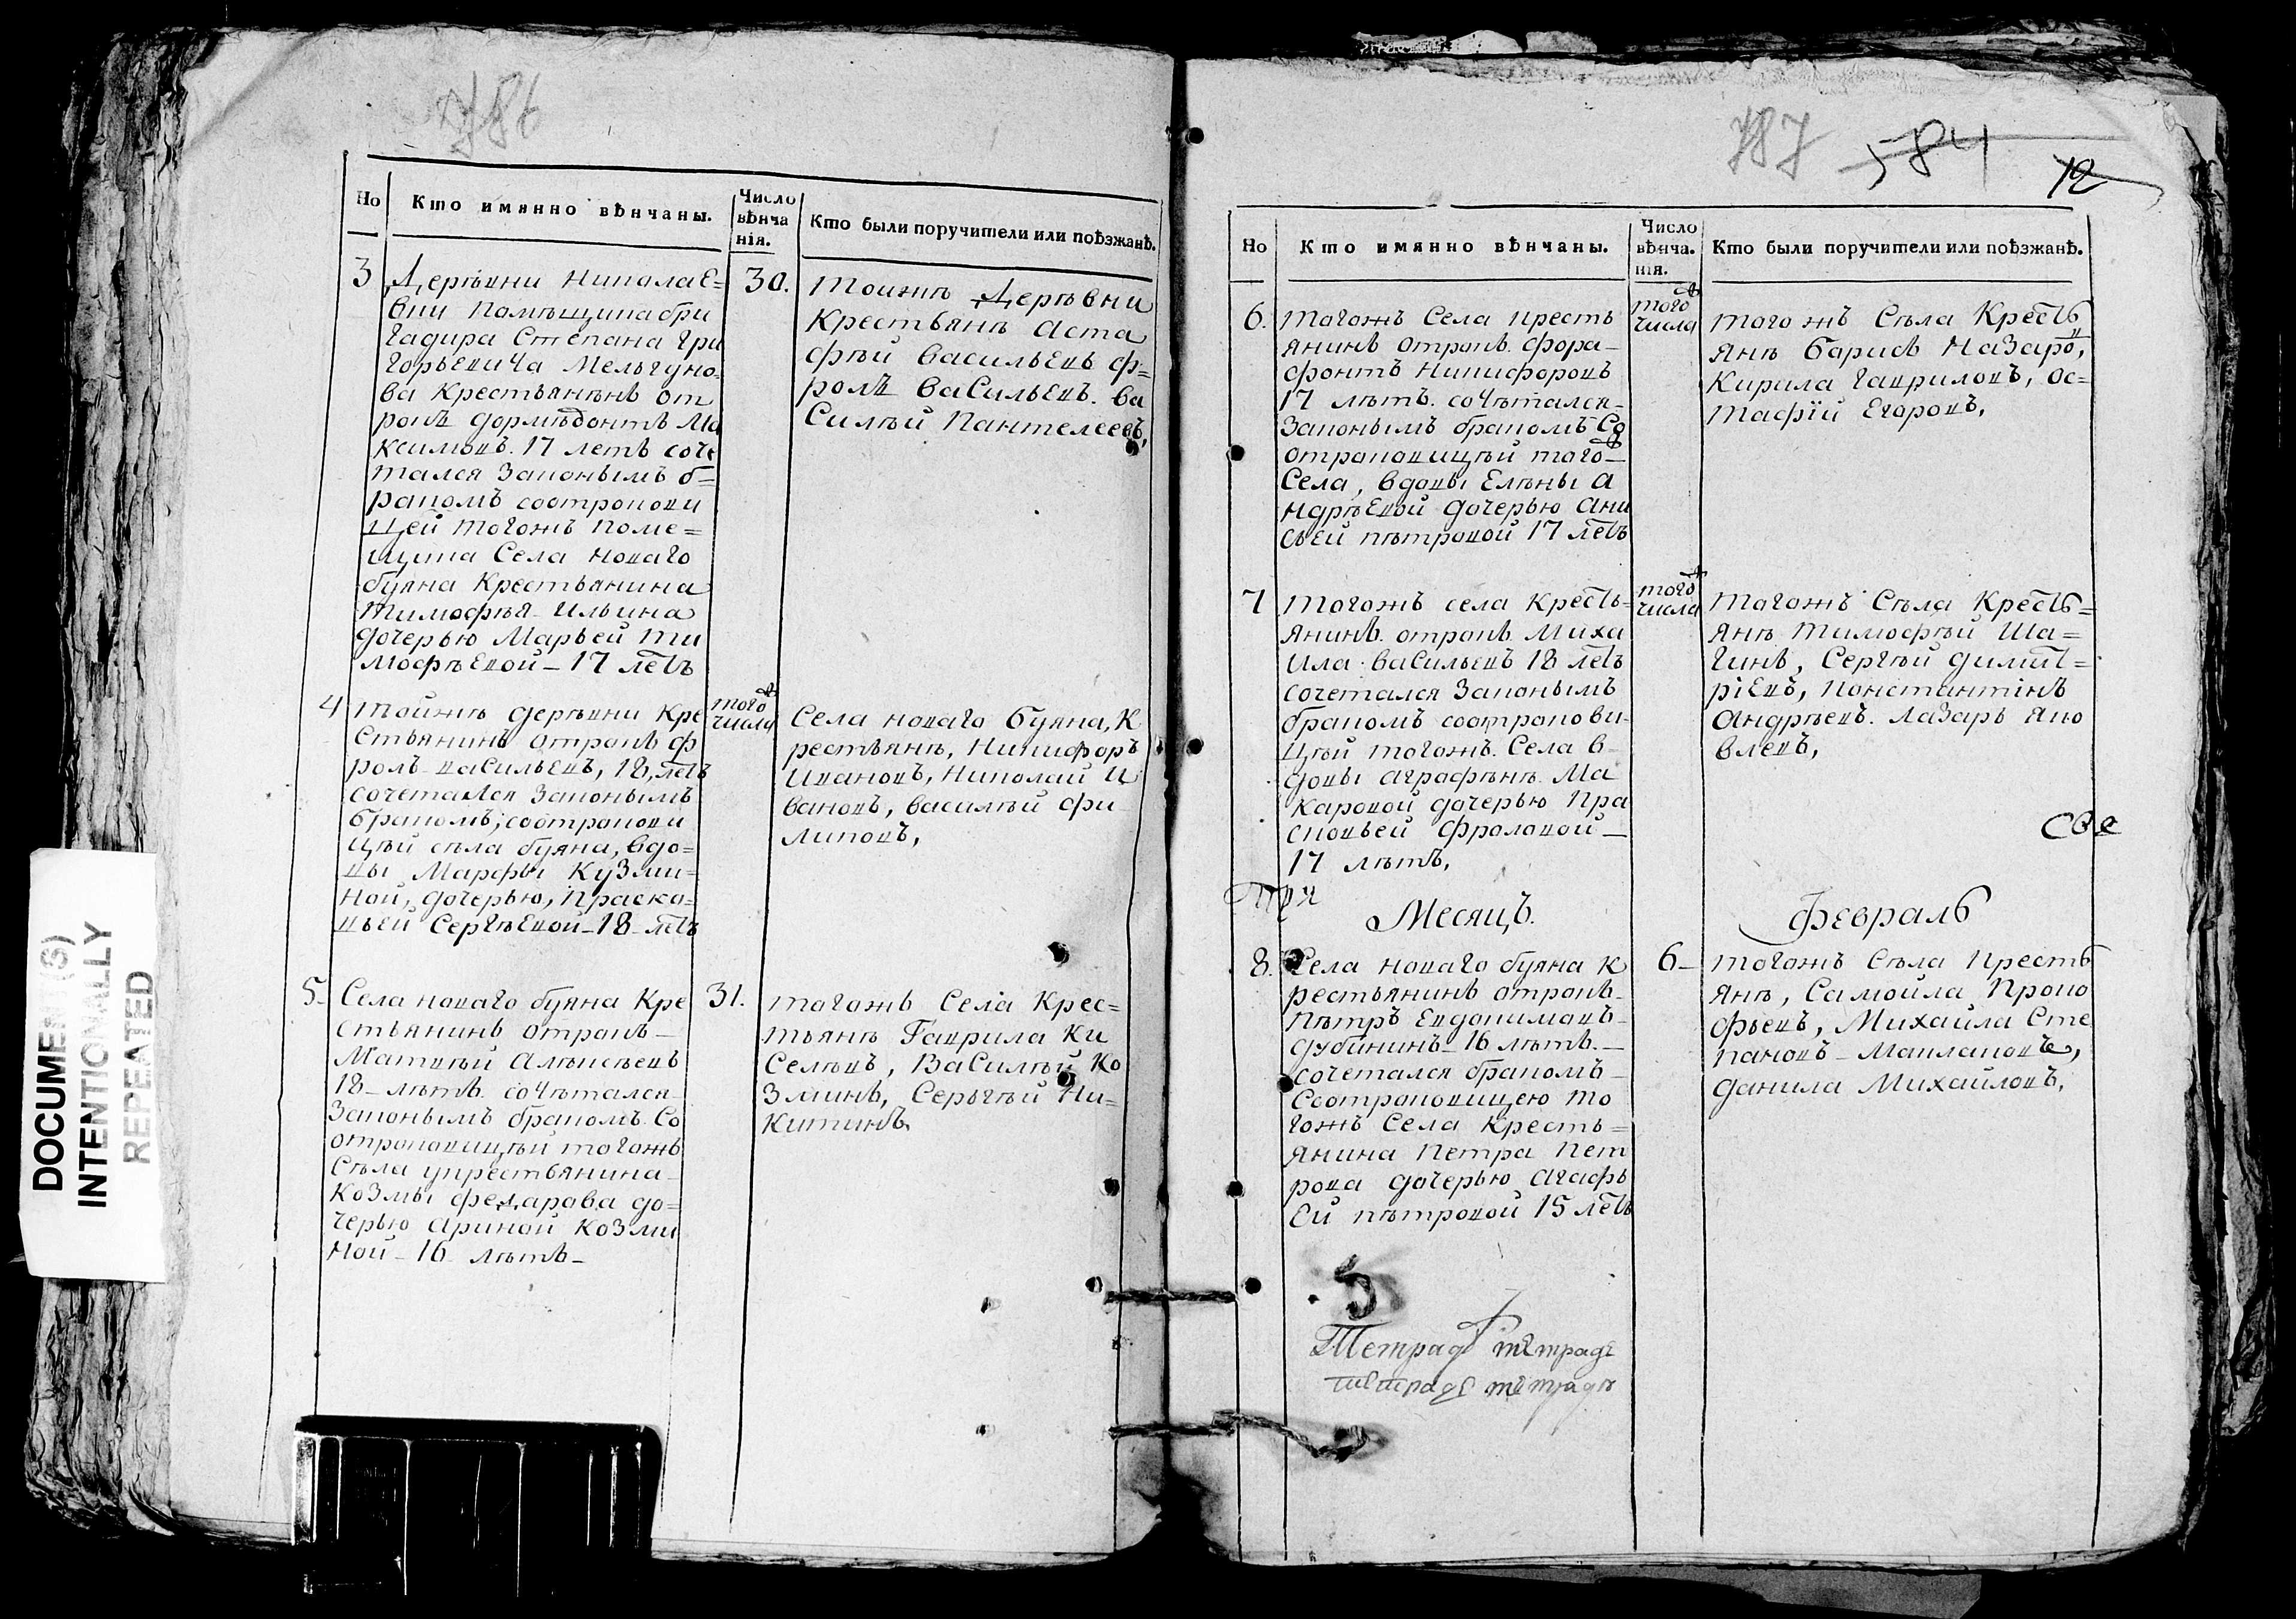 786
Но
Кто имянно вѣнчаны.
Число
вѣнча
нія.
Кто были поручители или поѣзжанѣ.
3
Деревни Николае=
вки помѣщика бри
гадира Степана Гри
горьевича Мельгуно=
ва Крестьянѣнъ от
рокъ Дормѣдонтъ Ма
ксимовъ. 17 летъ соче
тался законымъ б=
ракомъ соотрокови
цей тогожъ поме=
щика Села новаго
буяна Крестьянина
Тимофѣя Ильина
дочерью Марьей Ти
мофѣевой – 17 летъ
30.
тоижѣ Деревни
Крестьянѣ Аста
фѣй Васильевъ ф=
ролъ Васильевъ. Ва
Силѣй Пантелеевъ,
4
тоижѣ деревни Кре
Стьянинъ отрокъ ф
ролъ Васильевъ, 18, летъ
сочетался законымъ
бракомъ, соотрокови
цѣй сѣла буяна, вдо=
вы Марфы Кузми=
ной, дочерью, Праско=
вьей Сергѣевой – 18 – летъ
того
числа
Села новаго буяна, К
рестьянѣ, Никифоръ
Ивановъ, Николай И
вановъ, василѣй фи
липовъ,
5
Села новаго буяна Кре
стьянинъ отрокъ –
Матвѣй Алѣксѣевъ
18 – лѣтъ. сочѣтался
Законымъ бракомъ. Со
отроковицѣй тогожъ
Сѣла укрестьянина
Козмы федарова до=
черью ариной козми
ной – 16 лѣтъ –
31.
тогожъ Села Крес=
тьянѣ Гаврила Ки
Селѣвъ, Василѣй Ко
Зминъ, Серьгѣй Ни=
китинъ
DOCUMENT(S)
INTENTIONALLY
REPEATED
787
584
12
Но
Кто имянно вѣнчаны.
Число
вѣнча.
нія.
Кто были поручители или поѣзжанѣ.
6.
тогожъ Села кресть
янинъ отрокъ. фора–
фонтъ Никифоровъ
17 лѣтъ. сочѣтался
Законымъ бракомъ Со
отроковицѣй того
Села, вдовы Елѣны А
ндрѣевой дочерью Ани
сьей пѣтровой 17 летъ
того
числа
того жъ Сѣла Кресть
янѣ барисъ Назаро,
Кирила Гавриловъ, Ос=
тафїй Егоровъ,
7
тогожъ села Кресть=
янинъ. отрокъ Миха
ила васильевъ 18 летъ
сочетался Законымъ
бракомъ соотрокови
цѣй тогожъ. Села в
довы аграфѣнѣ Ма
каровой дочерью Пра
сковьей фроловой –
17 лѣтъ,
того
числа
тогожъ Сѣла Кресть=
янѣ Тимофѣй Ша=
гинъ, Сергѣй димит=
ріевъ, Константінъ
Андрѣевъ. Лазарь Яко
влевъ,
Све
Месяцъ.
февраль
8.
Села новаго буяна К
рестьянинъ отрокъ
Пѣтръ Евдокимовъ
дубининъ – 16 лѣтъ. –
сочетался бракомъ
Соотроковицею то
гожъ Села Кресть=
янина Петра Пет
рова дочерью Агафь
ей пѣтровой 15 летъ
6 –
тогожъ Сѣла Кресть
янѣ, Самойла Проко
фьевъ, Михайла Сте
пановъ – Маклаковъ,
данила Михайловъ,
Тетрадь тетраде
тетраде тетрадѣ